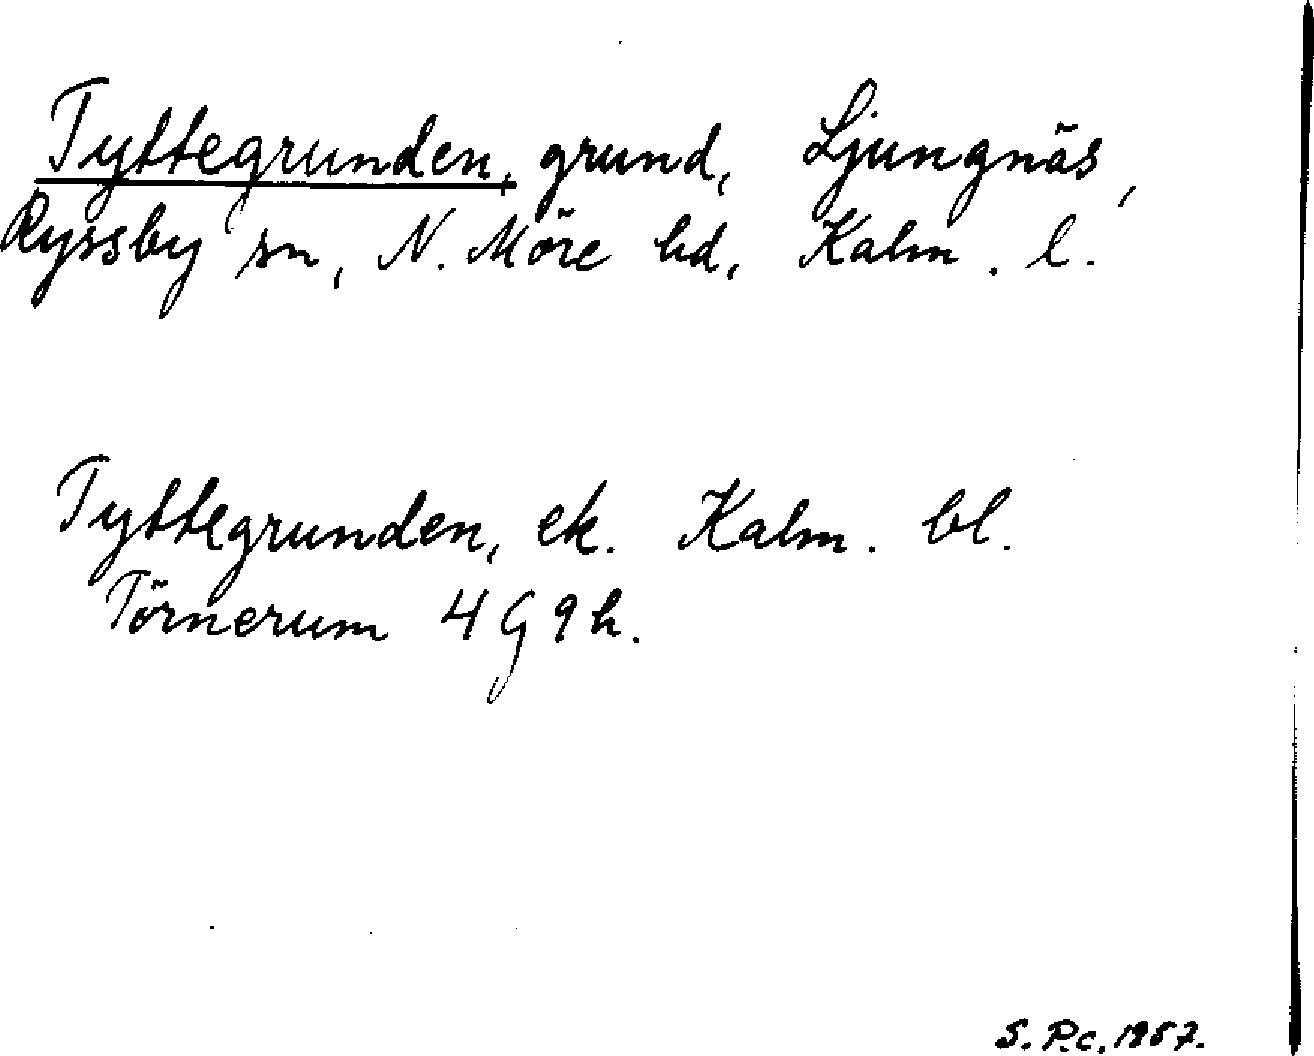 Tyttegrunden, grund, Ljungnäs,
Ryssby sn, N. Möre hd, Kalm. l.
Tyttegrunden, ek. Kalm. bl.
Törnerum 4G9h.
S. P.c. 1957.